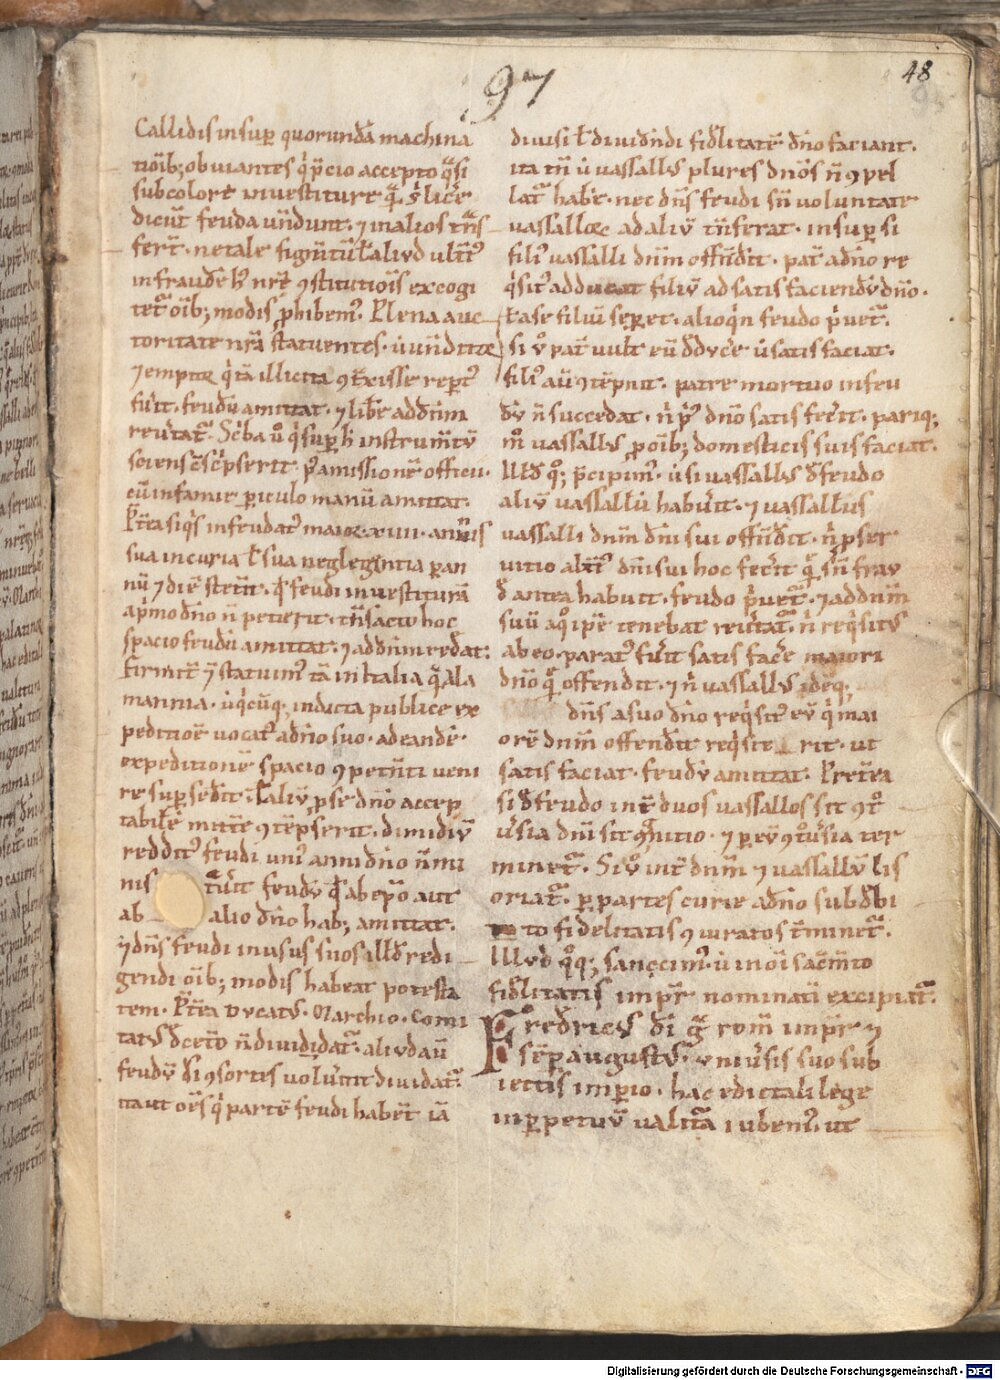 97
48
Callidis insup quorundā machina
tioīb; obuiantes q̇ p̄cio accepto q̄si
sub colore inuestiture q̄ s̄ lice̅
dicūt feuda uendunt · ⁊ in alios t̄ns
fer̄t · ne tale figm̄tū ł aliud ult̄i᷒
in fraudē h᷒ nr̄ę ꝯstitutiōis excogi
tet᷑ oīb; modis ꝓhibem᷒ · Plena auc
toritate nr̄a statuentes · ū uenditor
⁊ emptor q̇ tā illicita ꝯt̄xisse rep̄t᷒
fūit · feudū amittat · ⁊ libe̅ ad dn̄m
reūtat᷑ · Sc̄ba ů q̇ sup h̄ instrum̄tū
sciens cſc̄pserit · p᷑ amissionē officii ·
cū infamie piculo manū amittat ·
P̄t̄ea siq̇s infeudat᷒ maior · xiiii · annis
sua incuria ł sua neglegentia p an
nū ⁊ diē stet̄it · qđ feudi inuestiturā
ap̄mo dn̄o n̄ petierit · t̄nsacto hoc
spacio feudū amittat · ⁊ ad dn̄m redeat ·
firmit̄ ⁊ statuim᷒ tā in italia q̄ ala
mannia · ūq̇cūq; indicta publice ex
peditiōe uocat᷒ adn̄o suo · ad eandē
expeditionē spacio ꝯpetn̄ti ueni
re sup sed̄it · ł aliū p se dn̄o accep
tabilē mitt̄e ꝯtēpserit · dimidiū
reddit᷒ feudi uni᷒ anni dn̄o n̄ mi
nis tūit feudū qđ ab ep̄o aut
ab alio dn̄o hab; amittat ·
⁊ dn̄s feudi in usus suos illđ redi
gendi oīb; modis habeat potesta
tem · P̄t̄ea ducatus · Marchio · Comi
tatus đcet̄o n̄ diuidat᷑ · aliud aū
feudū si ꝯsortes uolūit diuidat᷑
ita ut oēs q̇ partē feudi habēt iā
diuisi ł diuidn̄di fidelitatē dn̄o faciant ·
ita tn̄ ū uassallus plures dn̄os n̄ ꝯpel
lat᷑ habe̅ · nec dn̄s feudi sn̄ uoluntate
uassalloꝝ ad aliū t̄nsferat · insup si
fili᷒ uassalli dn̄m offn̄dit · pat᷑ adn̄o re
q̇sit᷒ adducat filiū ad satisfaciendū dn̄o ·
ł a se filiū sepet · alioq̇n feudo p̄uet᷑ ·
si ů pat᷑ uult eū đduce̅ ū satisfaciat ·
fili᷒ aū ꝯtēpnit · patre mortuo in feu
dū n̄ succedat · n̄ p᷒ dn̄o satis fec̄it · pariq;
m̊ uassallus ꝓ oīb; domesticis suis faciat ·
Illđ q̊q; p̄cipim᷒ · ū si uassallus đ feudo
aliū uassallū habūit · ⁊ uassallus
uassalli dn̄m dn̄i sui offn̄dit · n̄ p ser
uitio alt̄i᷒ dn̄i sui hoc fec̄it q̄ sn̄ frau
đ antea habuit · feudo p̄uet᷑ · ⁊ ad dn̄m
suū aq̊ ip̄e tenebat reūtat᷑ · n̄ req̇sit᷒
ab eo · parat᷒ fūit satis face̅ maiori
dn̄o q̄ offendit · ⁊ n̄ uassallus ideq;
dn̄s a suo dn̄o req̇sit᷒ eū q̇ mai
orē dn̄m offendit req̇sie rit · ut
satis faciat · feudū amittat · Preterea
si đ feudo int̄ duos uassallos sit ꝯt᷒
ūsia dn̄i sit ꝯnitio · ⁊ p eū ꝯt᷒ūsia ter
minet᷑ · Si ů int̄ dn̄m ⁊ uassallū lis
oriat᷑ · p partes curie adn̄o sub đbi
to fidelitatis ꝯiuratos t̄minet᷑ ·
Illud q̊q; sanccim᷒ · ū in oī sac̄mto
fidelitatis imp̄r nominatī excipiat᷑ ·
Fredric᷒ dī gr̄a rom̄ imp̄r ⁊
sēp august᷒ · uniūsis suo sub
iectis imperio · hac edictali lege
inppetuū ualitura iubem᷒ · ut
Digitalisierung gefördert durch die Deutsche Forschungsgemeinschaft - DFG